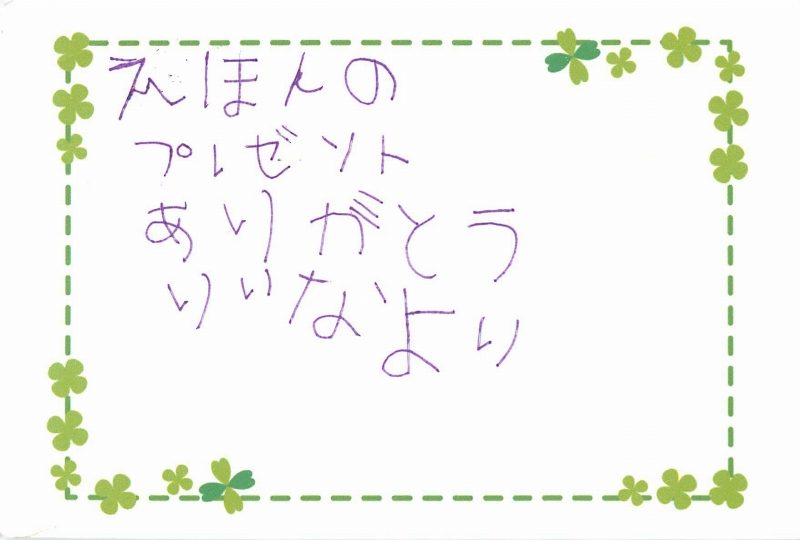 えほんの
プレゼント
ありがとう
りいなより